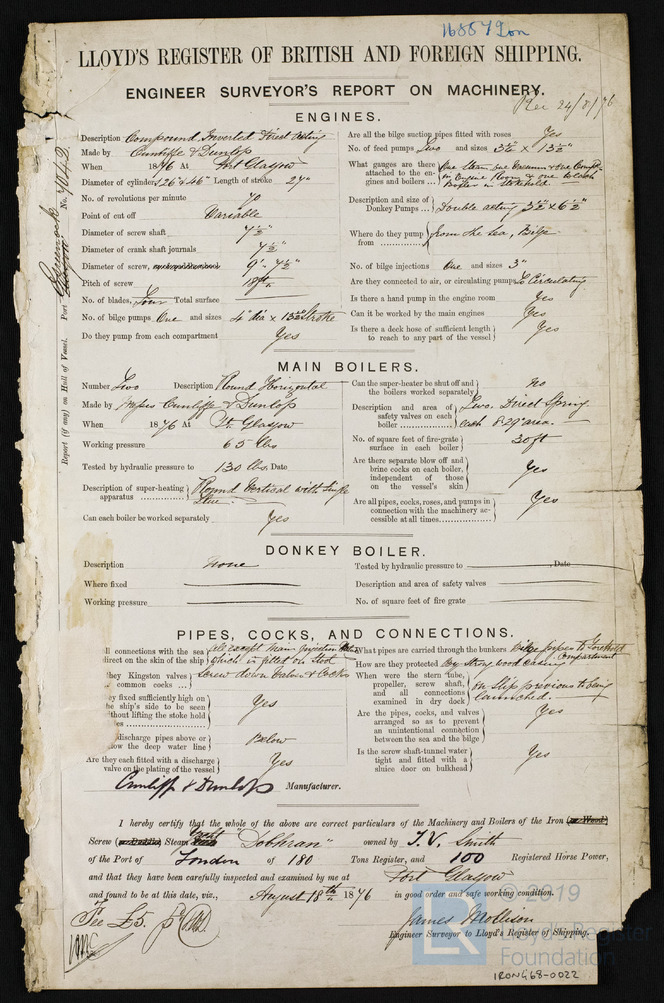 168879 Ion
LLOYD'S REGISTER OF BRITISH AND FOREIGN SHIPPING.
ENGINEER SURVEYOR'S REPORT ON MACHINERY.
Rec 24/8/76
No. 4142
Port Greenock
Report (if any) on Hull of Vessel.
ENGINES.
Description Compound Inverted Direct Acting
Made by Cunliffe & Dunlop
When 1876 At Port Glasgow
Diameter of cylinders 26" & 46" Length of stroke 27"
No. of revolutions per minute 70
Point of cut off Variable
Diameter of screw shaft 7½"
Diameter of crank shaft journals 7½"
Diameter of screw, 9'- 7½"
Pitch of screw 18ft
No. of blades, Four Total surface
No. of bilge pumps One and sizes 4" dia x 13½" Stroke
Do they pump from each compartment Yes
Are all the bilge suction pipes fitted with roses Yes
No. of feed pumps Two and sizes 3½ x 13½"
What gauges are there attached to the engines and boilers One Steam, one Vacuum & one Compd in Engine Room & one to each Boiler in Stokehold
Description and size of Donkey Pumps Double acting 3½ x 6½"
Where do they pump from from the Sea, Bilge
No. of bilge injections One and sizes 3"
Are they connected to air, or circulating pumps To Circulating
Is there a hand pump in the engine room Yes
Can it be worked by the main engines Yes
Is there a deck hose of sufficient length to reach to any part of the vessel Yes
MAIN BOILERS.
Number Two Description Round Horizontal
Made by Messrs Cunliffe & Dunlop
When 1876 At Pt. Glasgow
Working pressure 65 lbs
Tested by hydraulic pressure to 130 lbs, Date
Description of super-heating apparatus Round Vertical with Single Flue
Can each boiler be worked separately Yes
Can the super-heater be shut off and the boilers worked separately No
Description and area of safety valves on each boiler Two. Direct Spring each 8.29" area.
No. of square feet of fire-grate surface in each boiler 30ft
Are there separate blow off and brine cocks on each boiler, independent of those on the vessel's skin Yes
Are all pipes, cocks, roses, and pumps in connection with the machinery accessible at all times Yes
DONKEY BOILER.
Description none
Where fixed
Working pressure
Tested by hydraulic pressure to , Date
Description and area of safety valves
No. of square feet of fire grate
PIPES, COCKS, AND CONNECTIONS.
ll connections with the sea direct on the skin of the ship all except main injection which is fitted on Stool
they Kingston valves common cocks Screw down Valves & Cocks
y fixed sufficiently high on he ship's side to be seen thout lifting the stoke hold es Yes
discharge pipes above or low the deep water line Below
Are they each fitted with a discharge valve on the plating of the vessel Yes
What pipes are carried through the bunkers Bilge pipes to Forehold Compartment
How are they protected By Strong wood Casing
When were the stern tube, propeller, screw shaft, and all connections examined in dry dock On Slip previous to being launched.
Are the pipes, cocks, and valves arranged so as to prevent an unintentional connection between the sea and the bilge Yes
Is the screw shaft-tunnel water tight and fitted with a sluice door on bulkhead Yes
Cunliff & Dunlop Manufacturer.
I hereby certify that the whole of the above are correct particulars of the Machinery and Boilers of the Iron (or Wood)
Screw (or Paddle) Steam Yacht "Dobhran" owned by T. V. Smith
of the Port of London of 180 Tons Register, and 100 Registered Horse Power,
and that they have been carefully inspected and examined by me at Port Glasgow
and found to be at this date, viz., August 18th 1876 in good order and safe working condition.
Fee £5.
James Mollison
Engineer Surveyor to Lloyd's Register of Shipping.
© 2019
Lloyd's Register
Foundation
IRONG68-0022